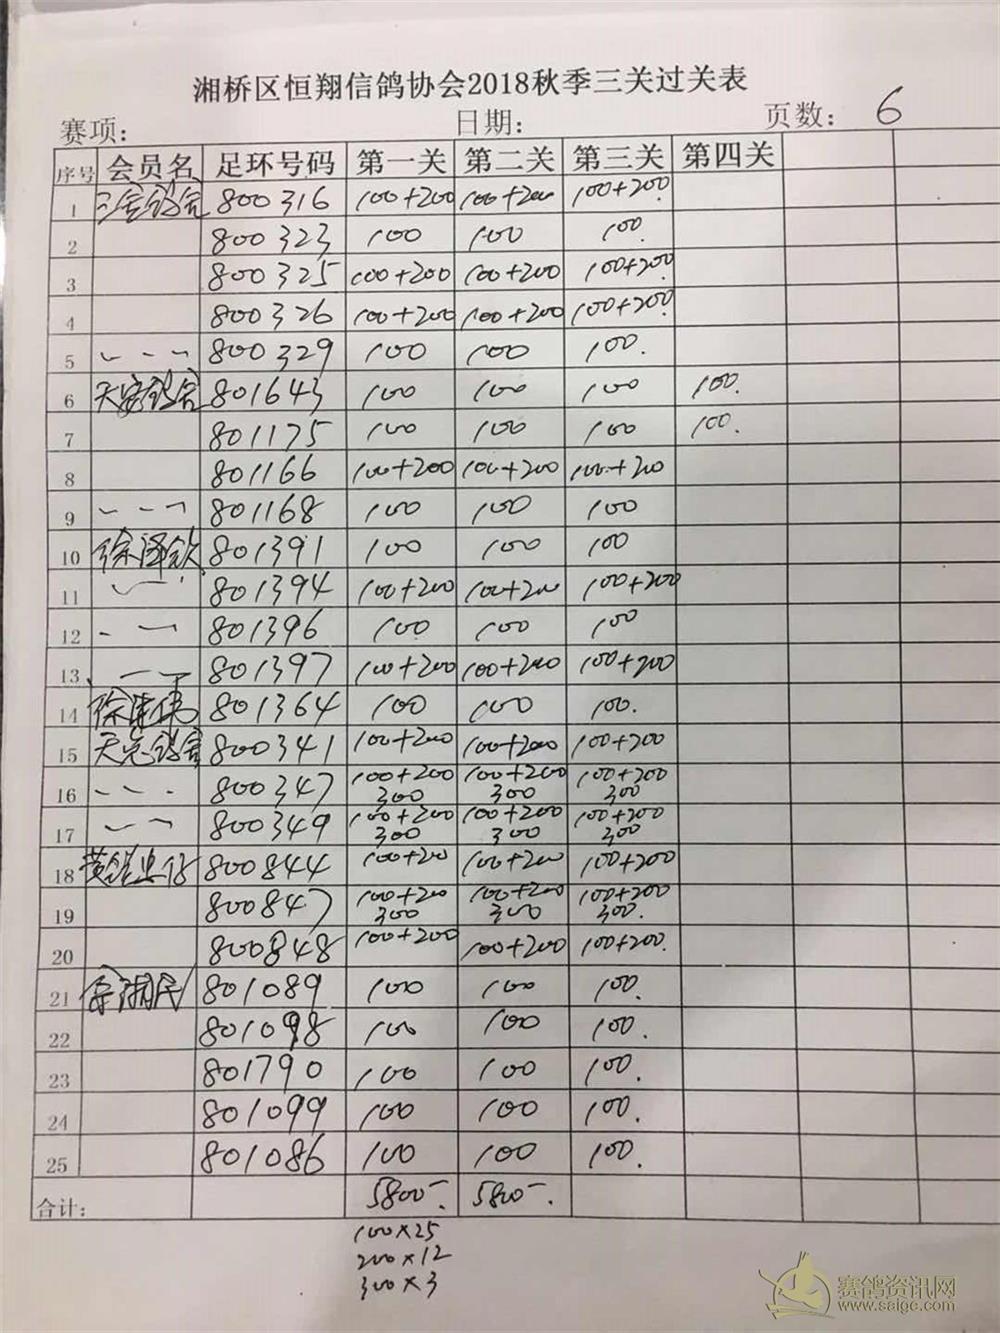 湘桥区恒翔信鸽协会2018秋季三关过关表
赛项: 日期: 页数: 6
序号 会员名 足环号码 第一关 第二关 第三关 第四关
1 800316 100+200 100+200 100+200
2 800323 100 100 100.
3 800325 100+200 100+200 100+200
4 800326 100+200 100+200 100+200
5 800329 100 100 100.
6 天安鸽舍 801643 100 100 100 100.
7 801175 100 100 100 100.
8 801166 100+200 100+200 100+200
9 801168 100 100 100
10 徐泽钦 801391 100 100 100
11 801394 100+200 100+200 100+200
12 801396 100 100 100
13 801397 100+200 100+200 100+200
14 801364 100 100 100.
15 800341 100+200 100+200 100+200
16 800347 100+200 300 100+200 300 100+200 300
17 800349 100+200 300 100+200 300 100+200 300
18 800844 100+200 100+200 100+200
19 800847 100+200 300 100+200 300 100+200 300.
20 800848 100+200 100+200 100+200.
21 801089 100 100 100.
22 801098 100 100 100.
23 801790 100 100 100.
24 801099 100 100 100.
25 801086 100 100 100.
合计: 5800-. 5800-.
100×25
200×12
300×3
赛鸽资讯网
www.saige.com